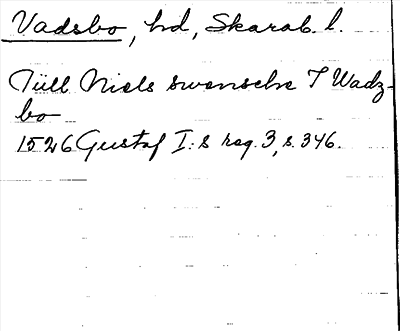 Vadsbo, hd, Skarab. l.
Tüll Niels swensche T Wadz-
bo
1526 Gustaf I:s reg. 3, s. 346.